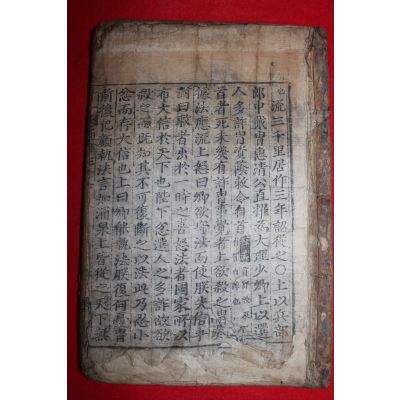 流三千里居作三年詔從之〇上以兵部
郎中戴冑忠清公直擢爲大理少卿上以選
人多詐冒資蔭敕令自首不
首者死未幾有詐冒事覺者上欲殺之冑奏
據法應流上怒曰卿欲守法而使朕失信乎
對曰敕者出於一時之喜怒法者國家所以
布大信於天下也陛下忿選人之多詐故欲
殺之而旣知其不可復斷之以法此乃忍小
忿而存大信也上曰卿能執法朕復何憂冑
前後犯顏執法言如涌泉上皆從之天下無